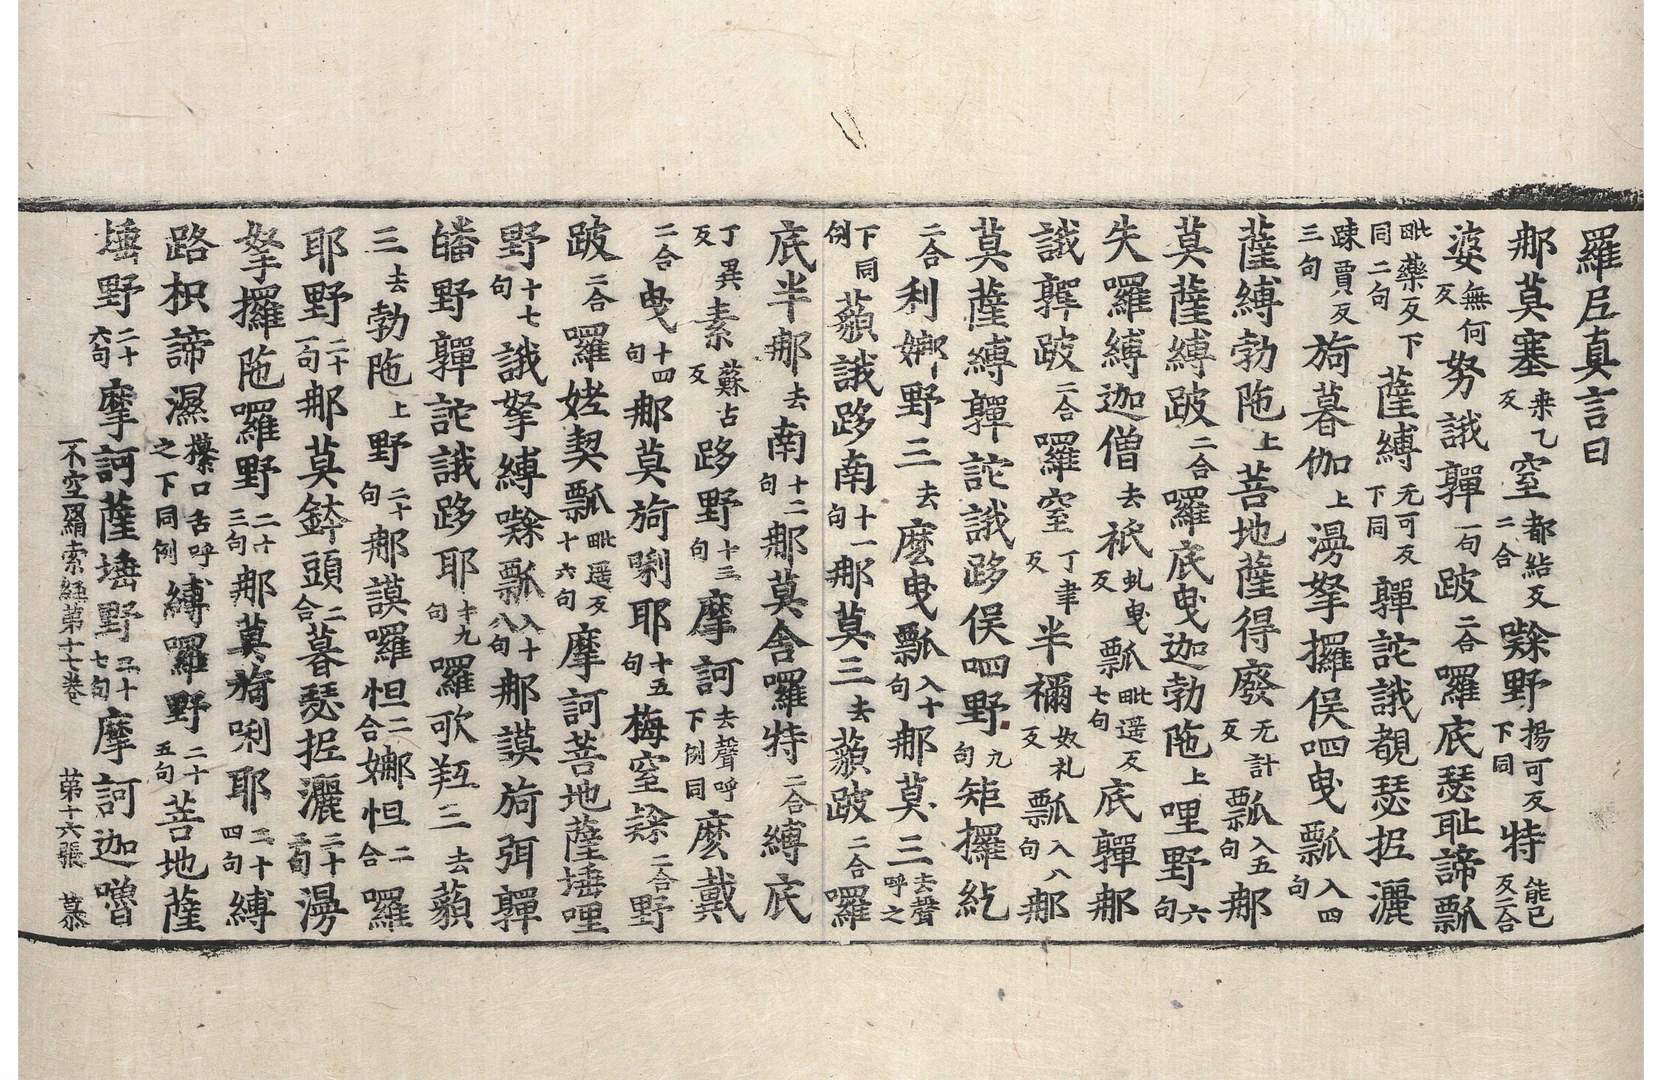 羅尼真言曰
那莫塞桒乙反窒都結反二合㗚野揚可反下同特能邑反二合
婆無何反努誐嚲一句跛二合囉底瑟耻諦瓢
毗藥反下同二句薩縛无可反下同嚲詑誐覩瑟抳灑
踈賈反三句旖暮伽上湯拏攞俁呬曳瓢入四句
薩縛勃陁上菩地薩得廢无計反瓢入五句那
莫薩縛跛二合囉底曳迦勃陁上哩野六句
失囉縛迦僧去祇虬曳反瓢毗遥反七句底嚲那
誐嚲跛二合囉窒丁聿反半禰奴礼反瓢入八句那
莫薩縛嚲詑誐跢俁呬野九句矩攞紇
二合利娜野三去麽曳瓢入十句那莫三去聲呼之
下同例藐誐跢南十一句那莫三去藐跛二合囉
底半那去南十二句那莫舍囉特二合縛底
丁異反素蘇古反跢野十三句摩訶去聲呼下例同麽戴
二合曳十四句那莫旖唎耶十五句梅窒㗚二合野
跛二合囉姥契瓢毗遥反十六句摩訶菩地薩埵哩
野十七句誐拏縛㗚瓢入十八句那謨旖弭嚲
皤野嚲詑誐跢耶十九句囉歌羝三去藐
三去勃陁上野二十句那謨囉怛二合娜怛二合羅
耶野二十一句那莫鉢頭二合暮瑟抳灑二十二句湯
拏攞陁囉野二十三句那莫旖唎耶二十四句縛
路枳諦濕櫱口舌呼之下同例縛囉野二十五句菩地薩
埵野二十六句摩訶薩埵野二十七句摩訶迦嚕
不空羂索經第十七卷 第十六張 慕